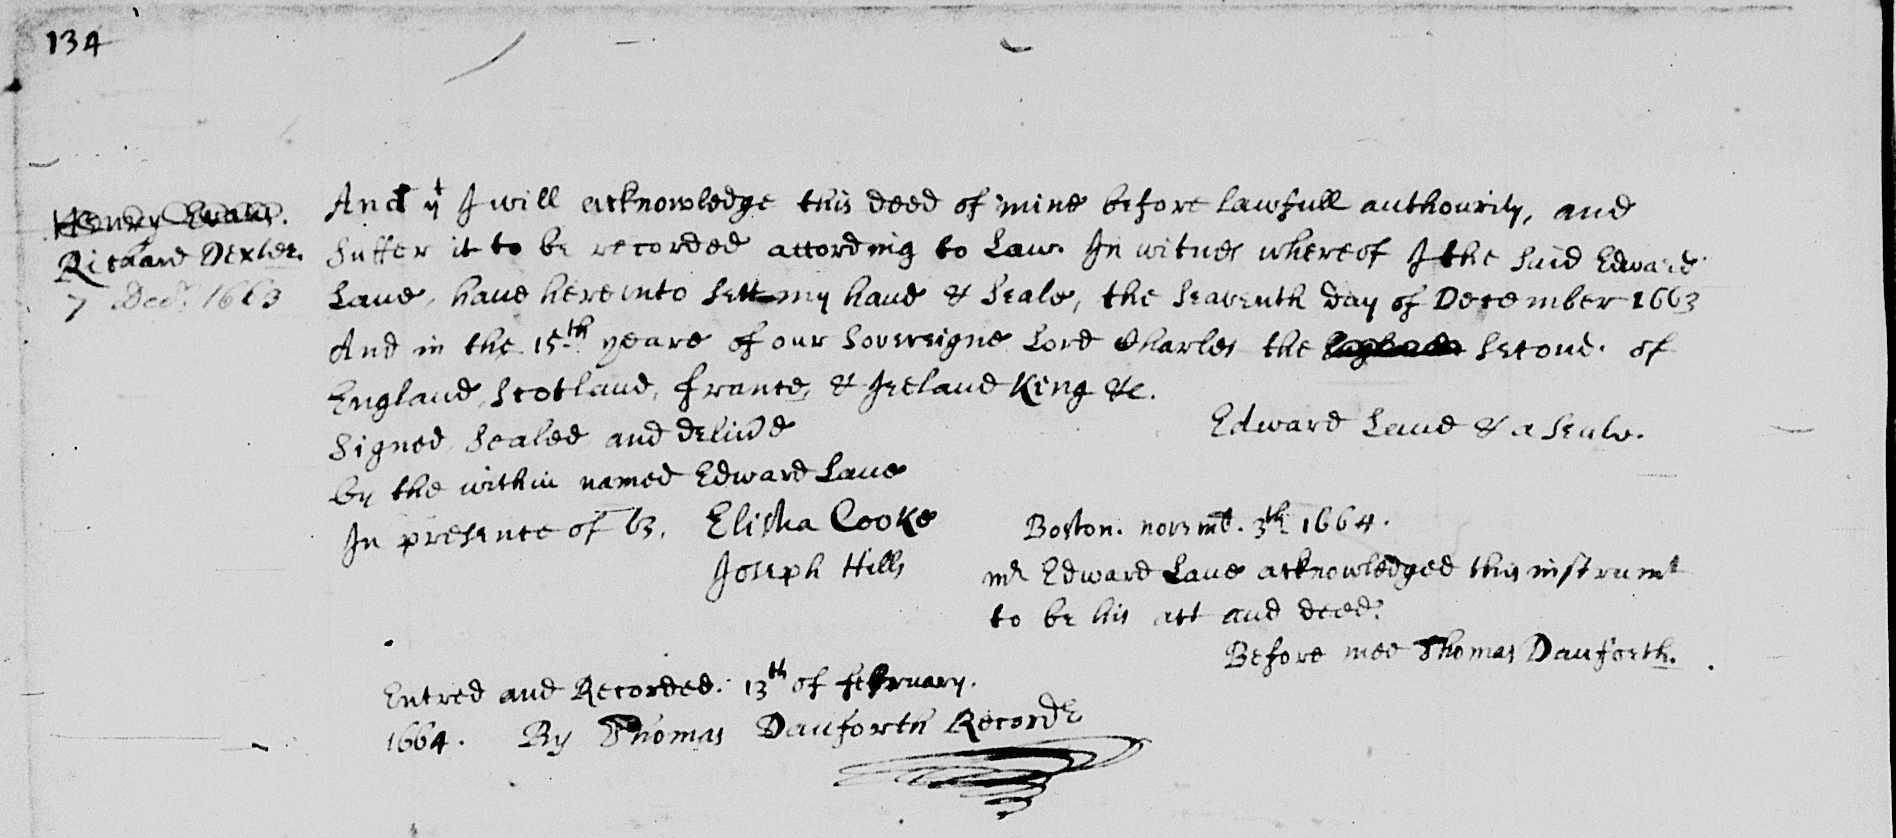 134
Henry Evans.
Richard Dexter.
7 Dec.r 1663
And yt I will acknowledge this deed of mine before lawfull authourity, and
Suffer it to be recorded according to Law. In witnes whereof I the said Edward
Lane, have hereunto sett my hand & Seale, the Seaventh day of December 1663
And in the 15th yeare of our Sovereigne Lord Charles the Second. of
England, Scotland, france, & Ireland King &c.
Edward Lane & a seale.
Signed Sealed and delivrd
by the within named Edward Lane
In presence of us. Elisha Cooke
Joseph Hills
Boston. novemb. 3th 1664.
mr Edward Lane acknowledged this instrumt
to be his act and deed.
Before mee Thomas Danforth.
Entred and Recorded. 13th of february.
1664. By Thomas Danforth Recordr